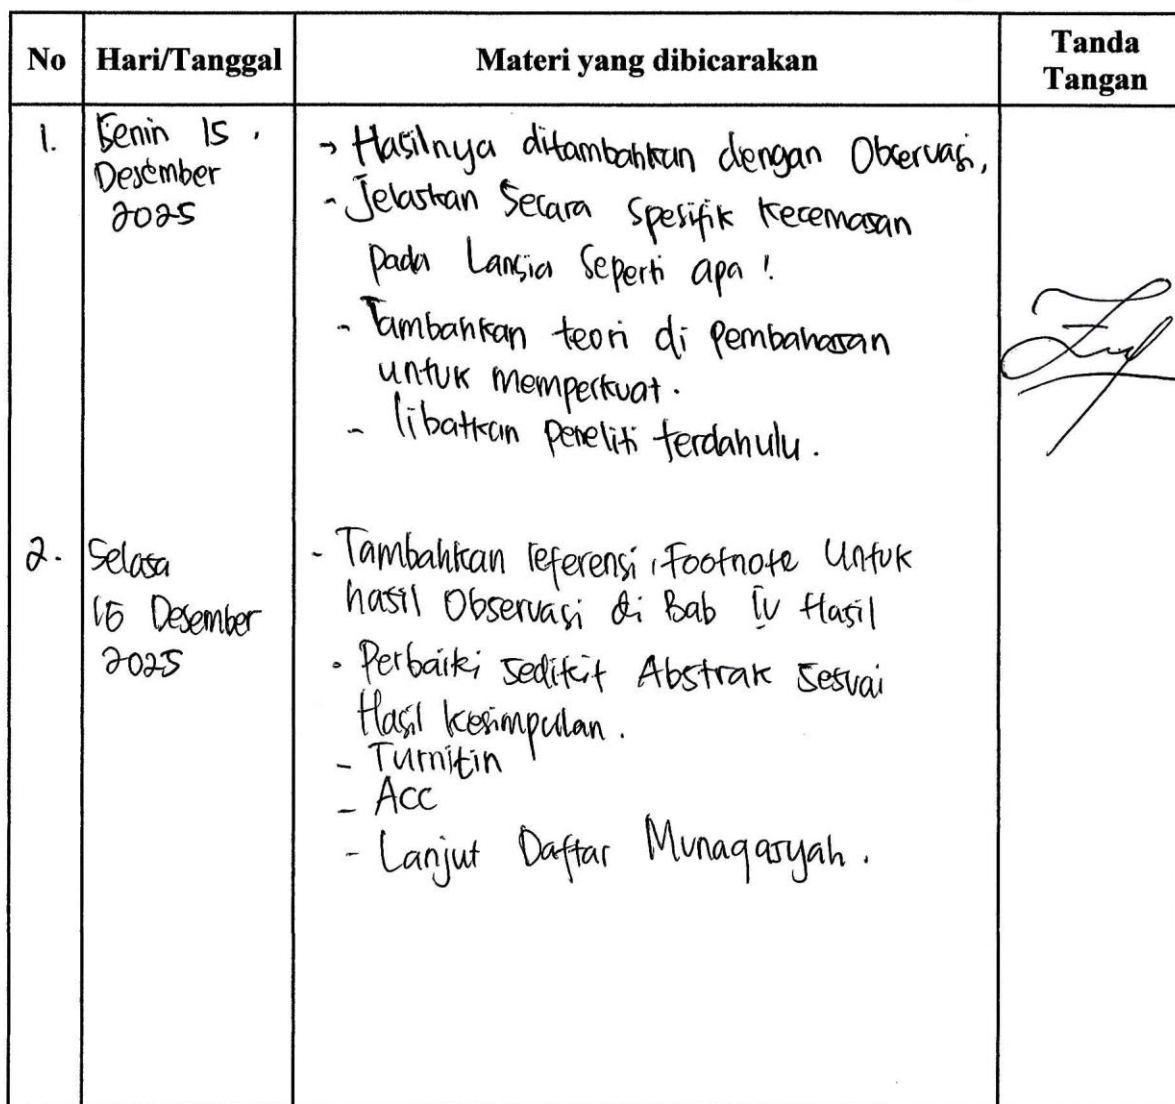 No Hari/Tanggal Materi yang dibicarakan Tanda Tangan
1. Senin 15, Desember 2025
→ Hasilnya ditambahkan dengan Observasi,
- Jelaskan Secara Spesifik Kecemasan
pada Lansia Seperti apa!
- Tambahkan teori di Pembahasan
untuk memperkuat.
- libatkan peneliti terdahulu.
2. Selasa
16 Desember
2025
- Tambahkan referensi, Footnote Untuk
hasil Observasi di Bab IV Hasil
- Perbaiki sedikit Abstrak Sesuai
Hasil kesimpulan.
- Turnitin
- Acc
- Lanjut Daftar Munaqasyah.